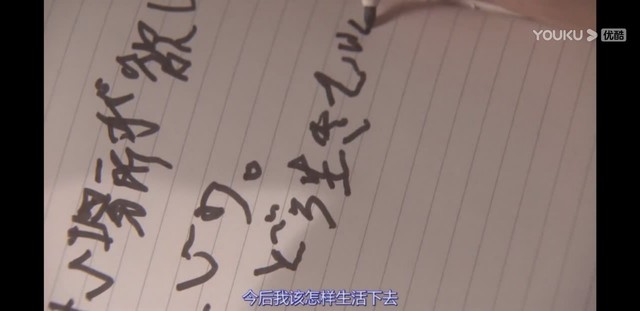 YOUKU 优酷
い場所が欲し
いの。
どう生きてい
今后我该怎样生活下去